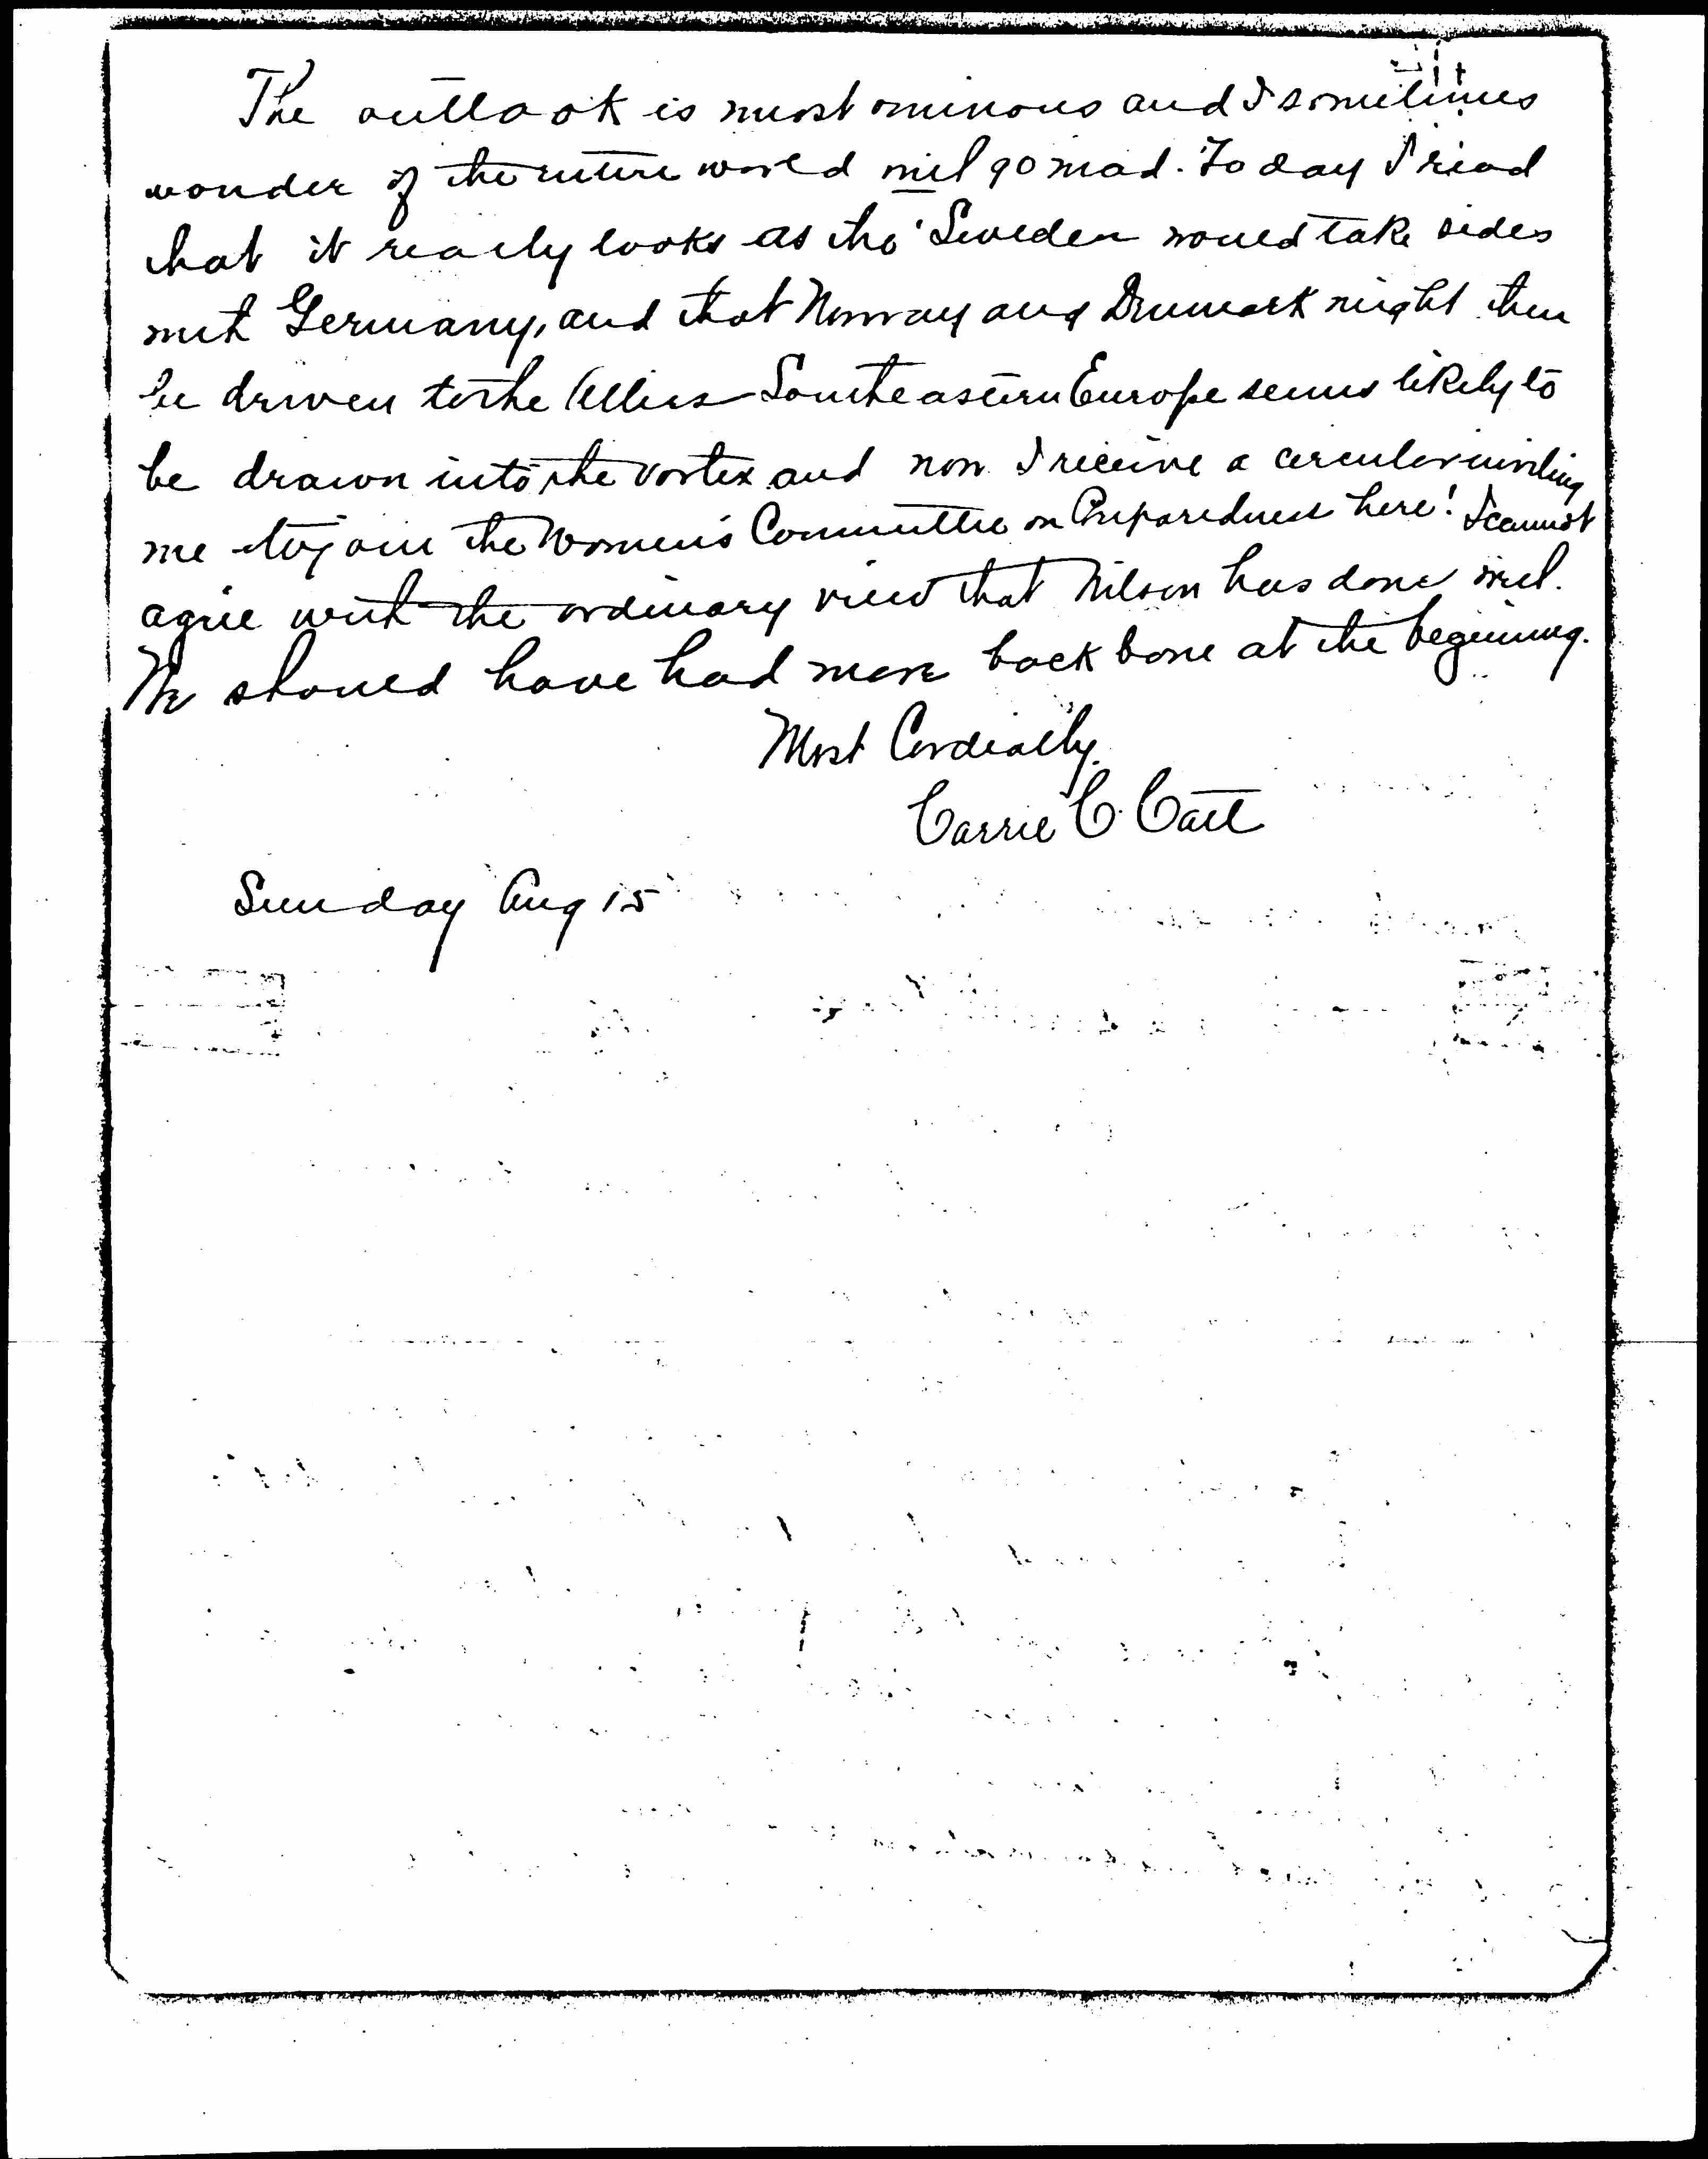 The outlook is most ominous and I sometimes
wonder if the entire world will go mad. Today I read
that it really looks as tho' Sweden would take sides
with Germany, and that Norway and Denmark might then
be driven to the Allies - Southeastern Europe seems likely to
be drawn into the vortex and now I receive a circular inviting
me to join the Women's Committee on Preparedness here! I cannot
agree with the ordinary view that Wilson has done well.
We should have had more back bone at the beginning.
Most Cordially
Carrie C. Catt
Sunday Aug 15